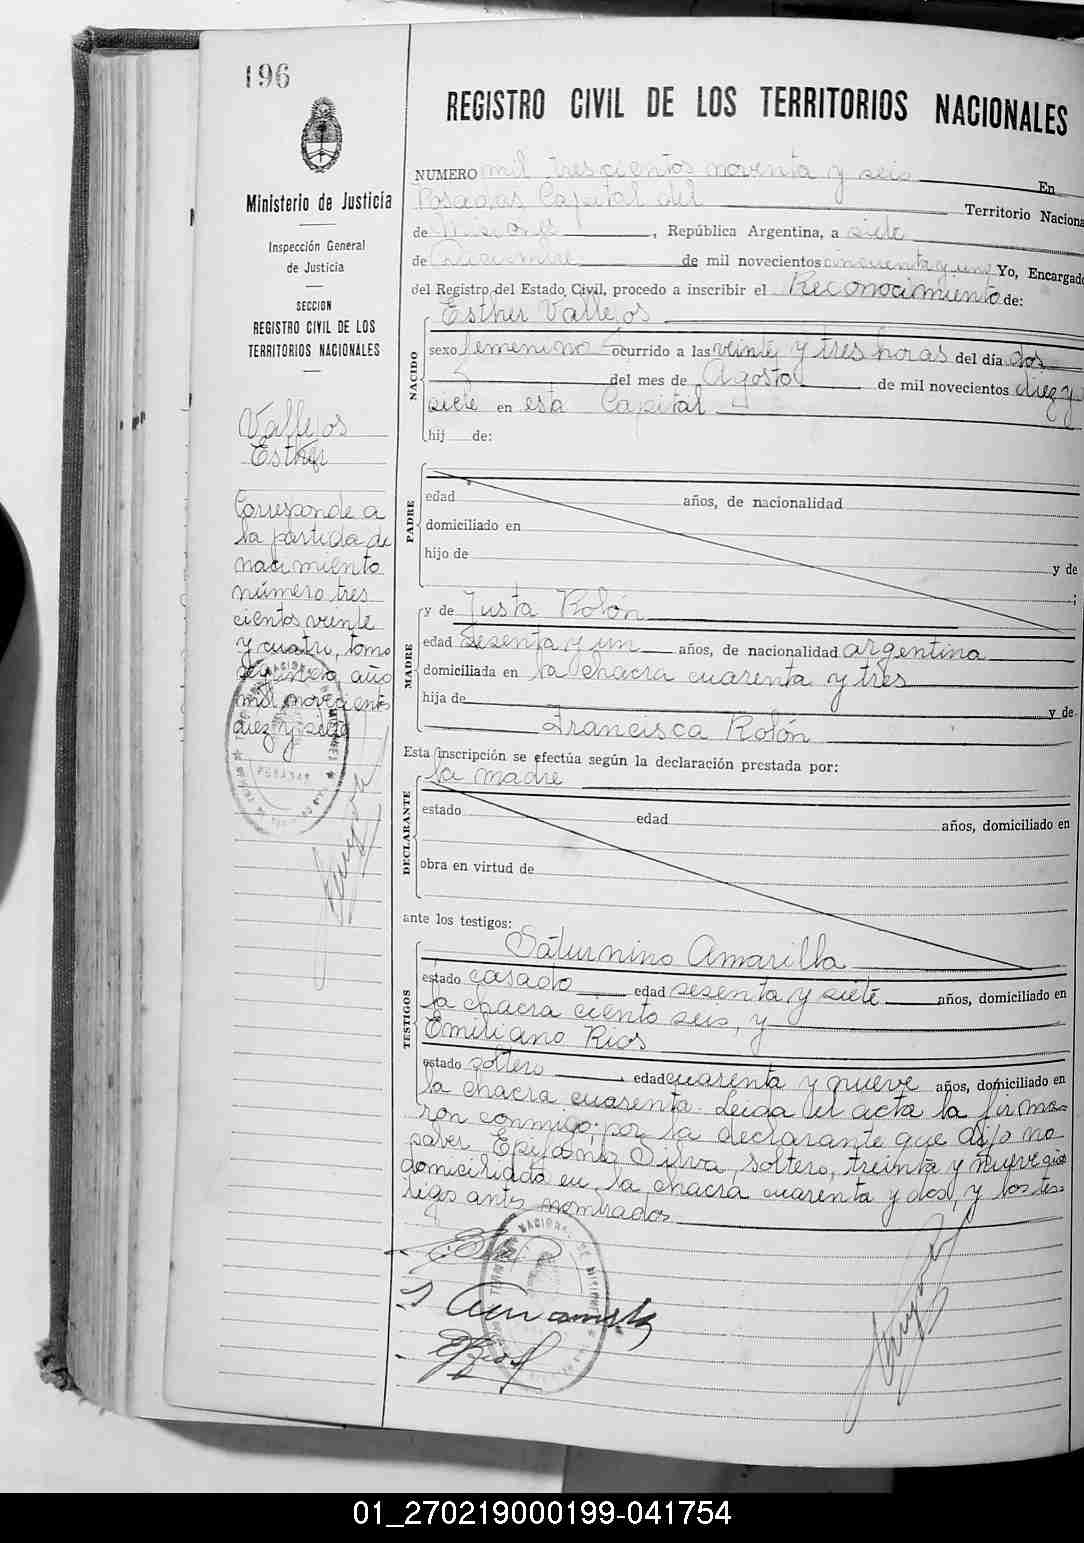 196
Ministerio de Justicia
Inspección General
de Justicia
SECCION
REGISTRO CIVIL DE LOS
TERRITORIOS NACIONALES
Vallejos
Esther
Corresponde a
la partida de
nacimiento
número tres
cientos veinte
y cuatro, tomo
año
mil novecientos
diez y siete
REGISTRO CIVIL DE LOS TERRITORIOS NACIONALES
NUMERO mil trescientos noventa y seis En
Posadas Capital del Territorio Naciona
de Misiones, República Argentina, a siete
de Diciembre de mil novecientos cincuenta y uno Yo, Encargado
del Registro del Estado Civil, procedo a inscribir el Reconocimiento de:
Esther Vallejos
NACIDO
sexo femenino ocurrido a las veinte y tres horas del día dos
del mes de Agosto de mil novecientos diez y
siete en esta Capital
hij de:
PADRE
edad años, de nacionalidad
domiciliado en
hijo de y de
;
y de Justa Rolón
MADRE
edad sesenta y un años, de nacionalidad argentina
domiciliada en la chacra cuarenta y tres
hija de y de
Francisca Rolón
Esta inscripción se efectúa según la declaración prestada por:
la madre
DECLARANTE
estado edad años, domiciliado en
obra en virtud de
ante los testigos:
Saturnino Amarilla
TESTIGOS
estado casado edad sesenta y siete años, domiciliado en
la chacra ciento seis, y
Emiliano Rios
estado soltero, edad cuarenta y nueve años, domiciliado en
la chacra cuarenta. Leida el acta la firma-
ron conmigo; por la declarante que dijo no
saber Epifanio Silva, soltero, treinta y nueve años
domiciliado en la chacra cuarenta y dos, y los tes-
tigos antes nombrados.
01_270219000199-041754